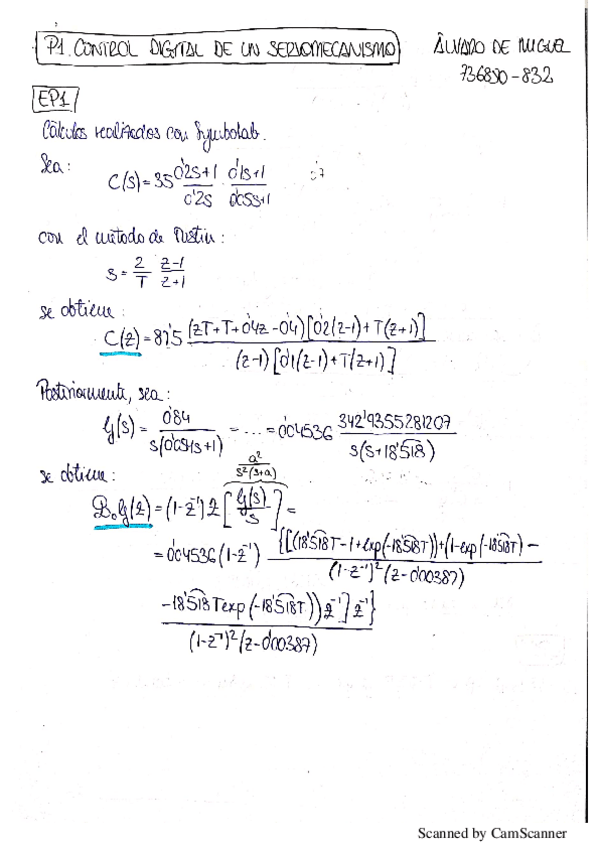 P1. CONTROL DIGITAL DE UN SERVOMECANISMO
ÁLVARO DE MIGUEL
736890-832
EP1
Cálculos realizados con Symbolab.
Sea:
C(s)=35 (0'2s+1)/(0'2s) · (0'1s+1)/(0'05s+1)
con el método de Tustin:
s = 2/T (z-1)/(z+1)
se obtiene:
C(z)=87'5 (zT+T+0'4z-0'4)[0'2(z-1)+T(z+1)] / (z-1)[0'1(z-1)+T(z+1)]
Posteriormente, sea:
G(s)= 0'84 / s(0'054s+1) = ... = 0'04536 342'9355281207 / s(s+18'518)
se obtiene:
a² / s²(s+a)
B₀G(z)=(1-z⁻¹) Z [G(s)/s] =
=0'04536(1-z⁻¹) {[(18'518T-1+exp(-18'518T))+(1-exp(-18'518T)- / (1-z⁻¹)²(z-0'00387)
-18'518Texp(-18'518T))z⁻¹]z⁻¹} / (1-z⁻¹)²(z-0'00387)
Scanned by CamScanner